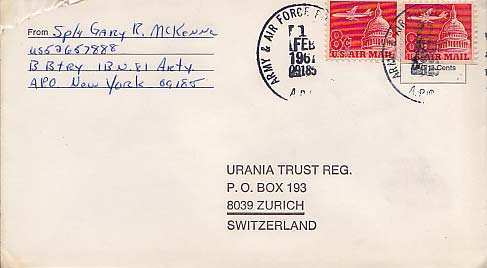 From Sp/4 GARY R. MCKENNA
US52657888
B Btry 1BN. 81 Arty
APO New York 09185
ARMY & AIR FORCE
1
FEB
1967
09185
8¢
U.S. AIR MAIL
8¢
U.S. AIR MAIL
Cents
URANIA TRUST REG.
P. O. BOX 193
8039 ZURICH
SWITZERLAND